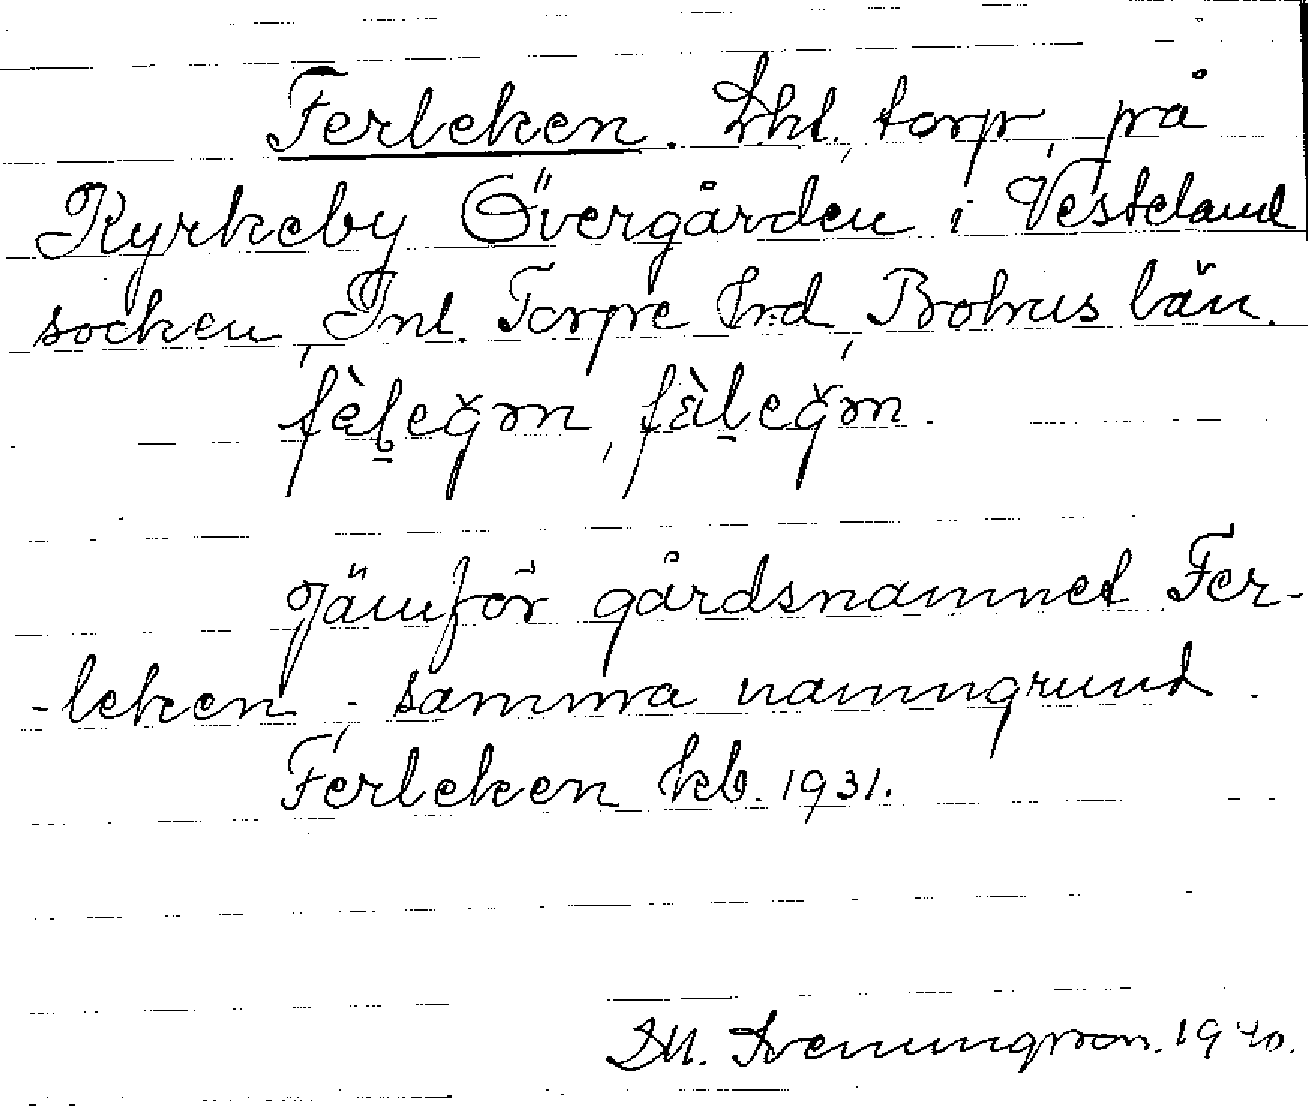 Ferleken. Lht., torp, på
Kyrkeby Övergården i Vesteland
socken, Inl. Torpe hrd, Bohus län.
fæ̀leǧən, fàleǧən.
Jämför gårdsnamnet Fer-
-leken, samma namngrund.
Ferleken kb. 1931.
D.H. Sveningsson. 1940.